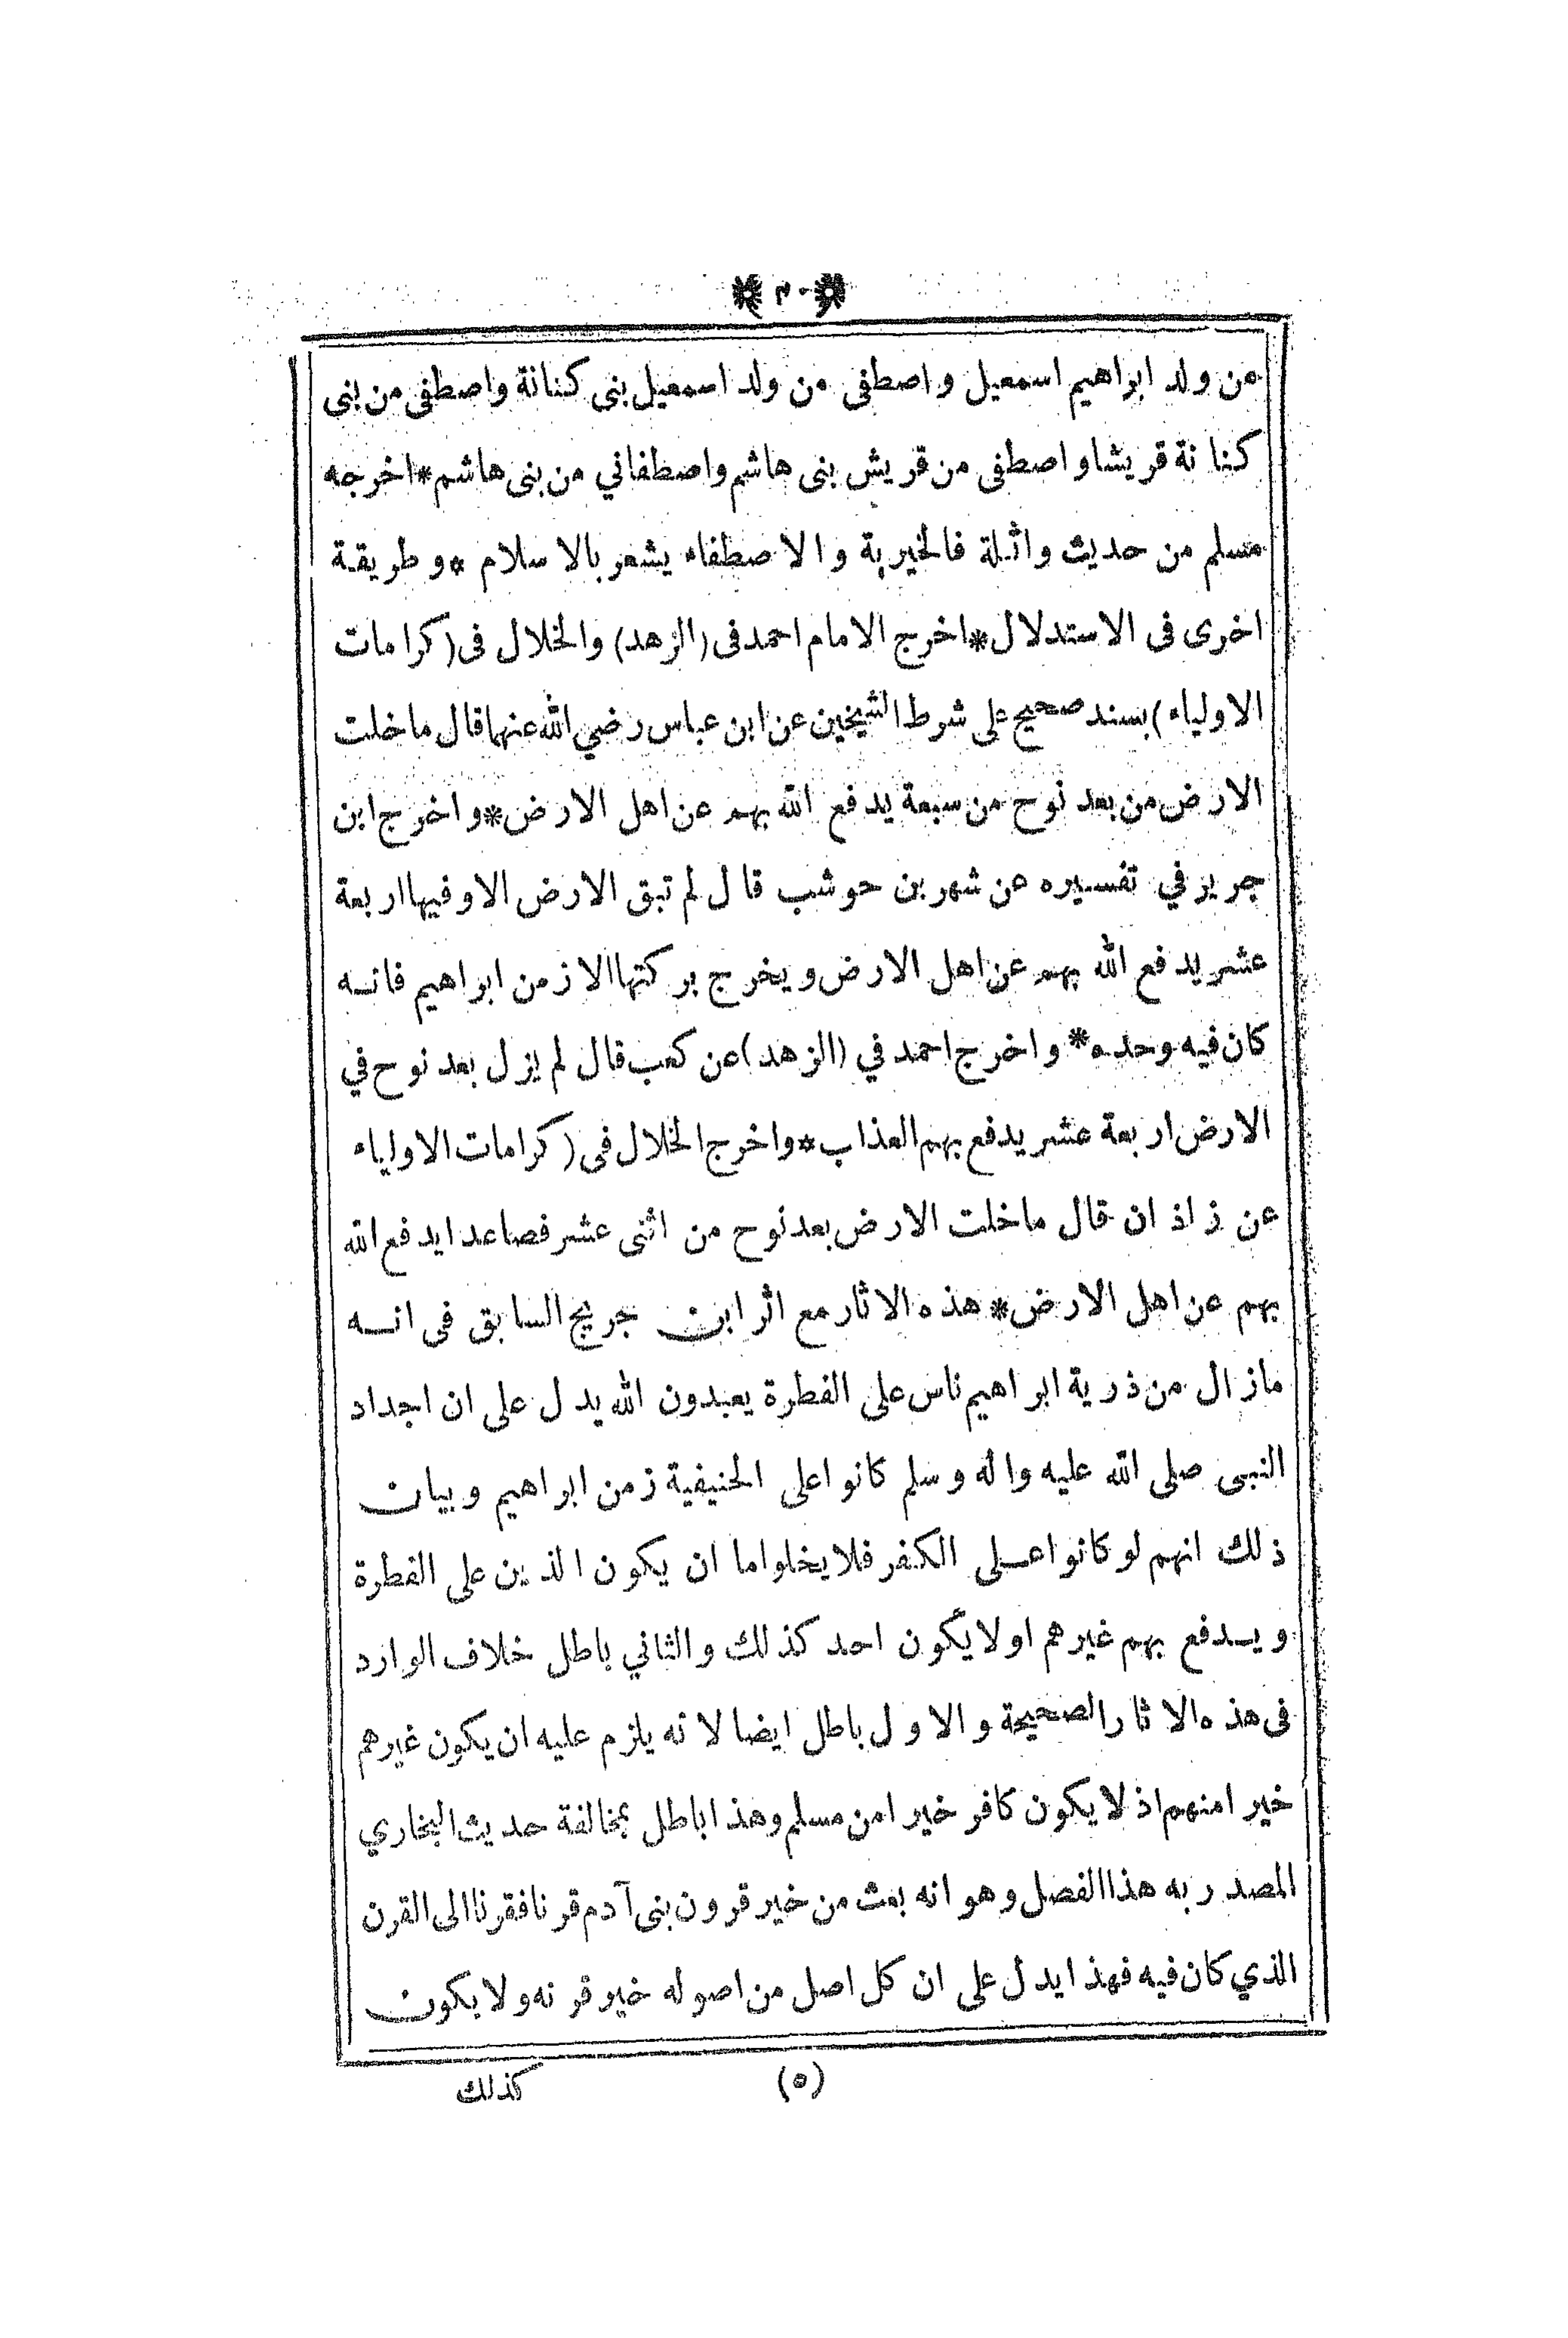 من ولد ابراهيم اسمعيل واصطفى من ولد اسمعيل بنى كنانة واصطفى من بنى
كنانة قريشا واصطفى من قريش بنى هاشم واصطفاني من بنى هاشم * اخرجه
مسلم من حديث واثلة فالخيرية والاصطفاء يشعر بالاسلام * وطريقة
اخرى فى الاستدلال * اخرج الامام احمد فى (الزهد) والخلال فى (كرامات
الاولياء) بسند صحيح على شرط الشيخين عن ابن عباس رضي الله عنهما قال ما خلت
الارض من بعد نوح من سبعة يدفع الله بهم عن اهل الارض * واخرج ابن
جرير في تفسيره عن شهر بن حوشب قال لم تبق الارض الا وفيها اربعة
عشر يدفع الله بهم عن اهل الارض ويخرج بركتها الا زمن ابراهيم فانه
كان فيه وحده * واخرج احمد في (الزهد) عن كعب قال لم يزل بعد نوح في
الارض اربعة عشر يدفع بهم العذاب * واخرج الخلال فى (كرامات الاولياء
عن زاذان قال ما خلت الارض بعد نوح من اثنى عشر فصاعدا يدفع الله
بهم عن اهل الارض * هذه الاثار مع اثر ابن جريج السابق فى انه
مازال من ذرية ابراهيم ناس على الفطرة يعبدون الله يدل على ان اجداد
النبى صلى الله عليه واله وسلم كانوا على الحنيفية زمن ابراهيم وبيان
ذلك انهم لو كانوا على الكفر فلا يخلو اما ان يكون الذين على الفطرة
ويدفع بهم غيرهم اولا يكون احد كذلك والثاني باطل خلاف الوارد
فى هذه الاثار الصحيحة والاول باطل ايضا لانه يلزم عليه ان يكون غيرهم
خيرا منهم اذ لا يكون كافر خيرا من مسلم وهذا باطل بمخالفة حديث البخاري
المصدر به هذا الفصل وهو انه بعث من خير قرون بنى آدم قرنا فقرنا الى القرن
الذي كان فيه فهذا يدل على ان كل اصل من اصوله خير قرنه ولا يكون
(٥)
كذلك